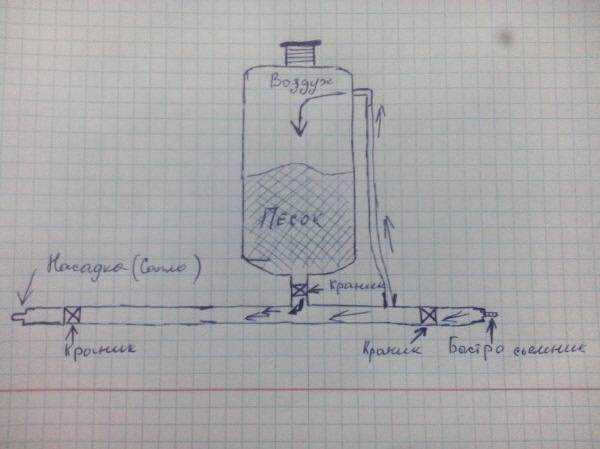 Воздух
Песок
Насадка (Сопло)
Краник
Краник
Краник
Быстро съемник